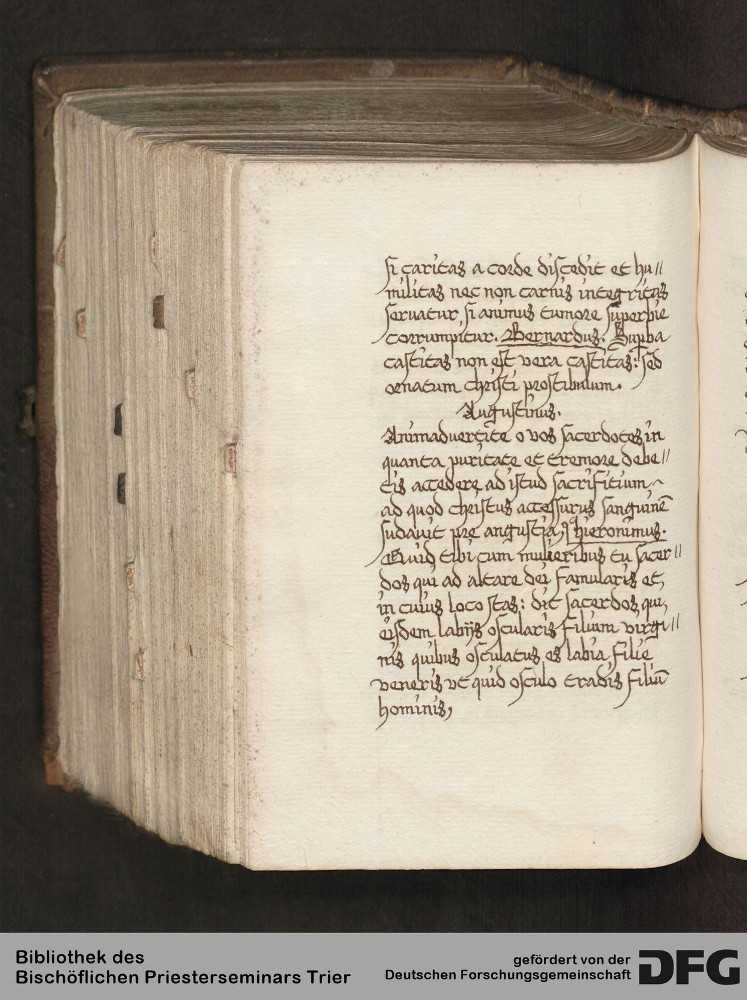 si caritas a corde discedit et hu//
militas nec non carnis integritas
servatur, si animus tumore superbie
corrumpitur. Bernardus. Supba
castitas non est vera castitas: sed
ornatum christi prostibulum.
Augustinus.
Animadvertite o vos sacerdotes in
quanta puritate et tremore debe//
tis accedere ad istud sacrifitium
ad quod christus accessurus sanguinē
sudavit pre angustia, hieronimus.
Quid tibi cum mulieribus tu sacer//
dos qui ad altare dei famularis et,
in cuius loco stas: dic sacerdos, qui,
eisdem labijs oscularis filium virgi//
nis quibus osculatus es labia filie
veneris ut quid osculo tradis filiū
hominis,
Bibliothek des
Bischöflichen Priesterseminars Trier
gefördert von der
Deutschen Forschungsgemeinschaft
DFG